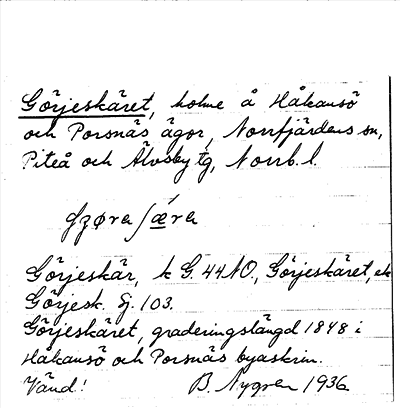 Görjeskäret, holme å Håkansö
och Porsnäs ägor, Norrfjärdens sn,
Piteå och Älvsby tg, Norrb. l.
Görjeskär, k G. 44 NO., Görjeskäret, ek
Görjesk. Sj. 103.
Görjeskäret, graderingslängd 1848 i
Håkansö och Porsnäs byaskrin.
Vänd! B. Nygren 1936